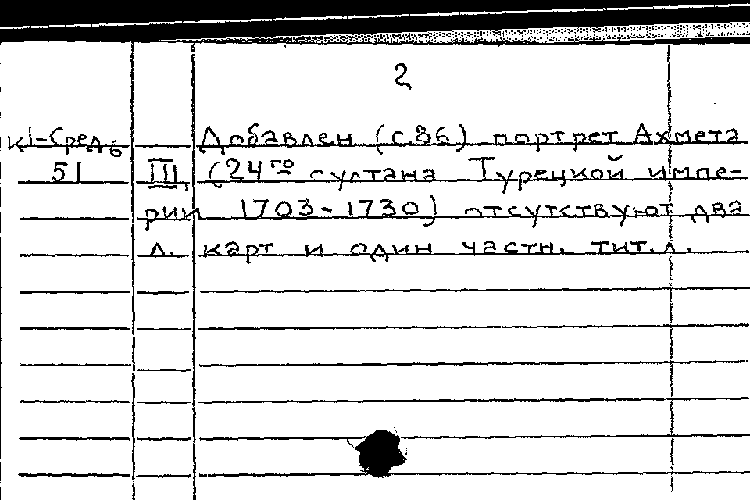 2
К1-Сред. Добавлен (с.86) портрет Ахмета
51 III, (24го султана Турецкой импе-
рии 1703-1730) отсутствуют два
л. карт и один частн. тит. л.